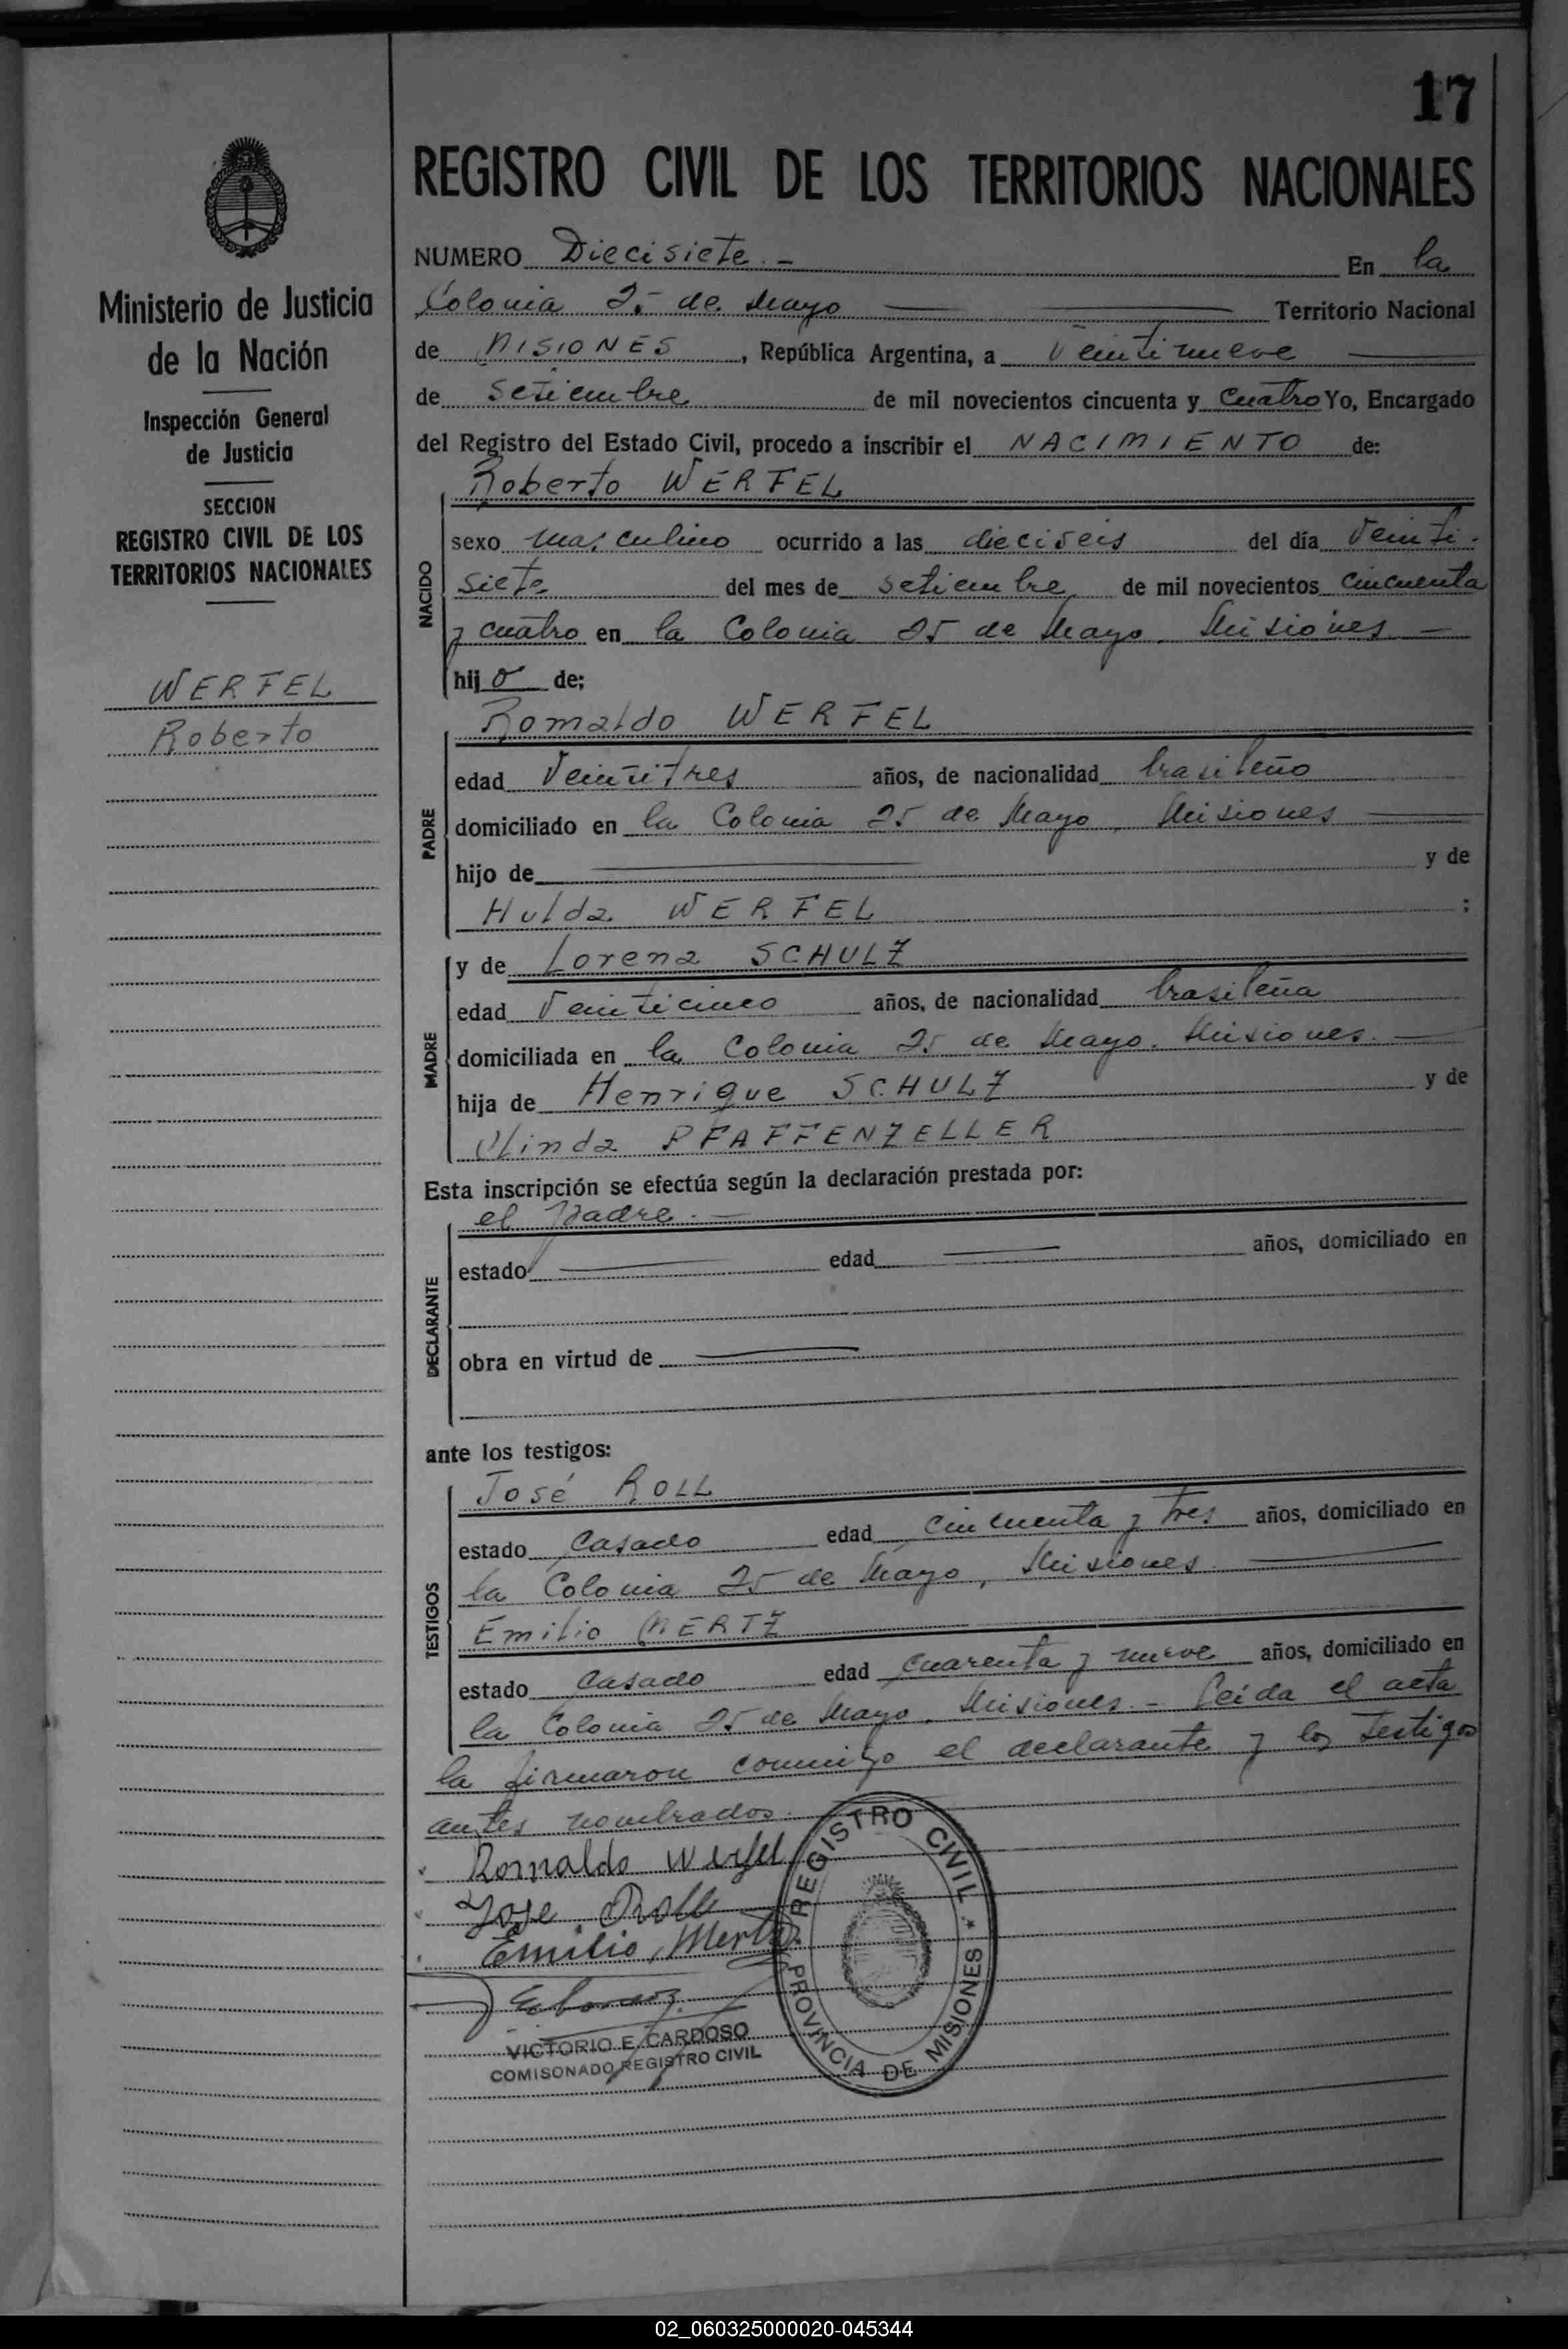 17
REGISTRO CIVIL DE LOS TERRITORIOS NACIONALES
Ministerio de Justicia
de la Nación
Inspección General
de Justicia
SECCION
REGISTRO CIVIL DE LOS
TERRITORIOS NACIONALES
WERFEL
Roberto
NUMERO Diecisiete.- En la
Colonia 25 de Mayo Territorio Nacional
de MISIONES, República Argentina, a Veintinueve
de setiembre de mil novecientos cincuenta y cuatro Yo, Encargado
del Registro del Estado Civil, procedo a inscribir el NACIMIENTO de:
NACIDO
Roberto WERFEL
sexo masculino ocurrido a las dieciseis del día Veinti-
siete del mes de setiembre de mil novecientos cincuenta
y cuatro en la Colonia 25 de Mayo. Misiones -
hijo de:
PADRE
Romaldo WERFEL
edad Veintitres años, de nacionalidad brasileño
domiciliado en la Colonia 25 de Mayo, Misiones
hijo de y de
Hulda WERFEL ;
MADRE
y de Lorena SCHULZ
edad Veinticinco años, de nacionalidad brasileña
domiciliada en la Colonia 25 de Mayo. Misiones.
hija de Henrique SCHULZ y de
Olinda PFAFFENZELLER
Esta inscripción se efectúa según la declaración prestada por:
DECLARANTE
el padre. -
estado edad años, domiciliado en
obra en virtud de
ante los testigos:
TESTIGOS
José ROLL
estado Casado edad Cincuenta y Tres años, domiciliado en
la Colonia 25 de Mayo, Misiones
Emilio MERTZ
estado Casado edad Cuarenta y nueve años, domiciliado en
la Colonia 25 de Mayo. Misiones. - Leida el acta
la firmaron conmigo el declarante y los Testigos
antes nombrados.
Romaldo Werfel
Jose Roll
Emilio Mertz
VICTORIO E. CARDOSO
COMISONADO REGISTRO CIVIL
REGISTRO CIVIL * PROVINCIA DE MISIONES *
02_060325000020-045344